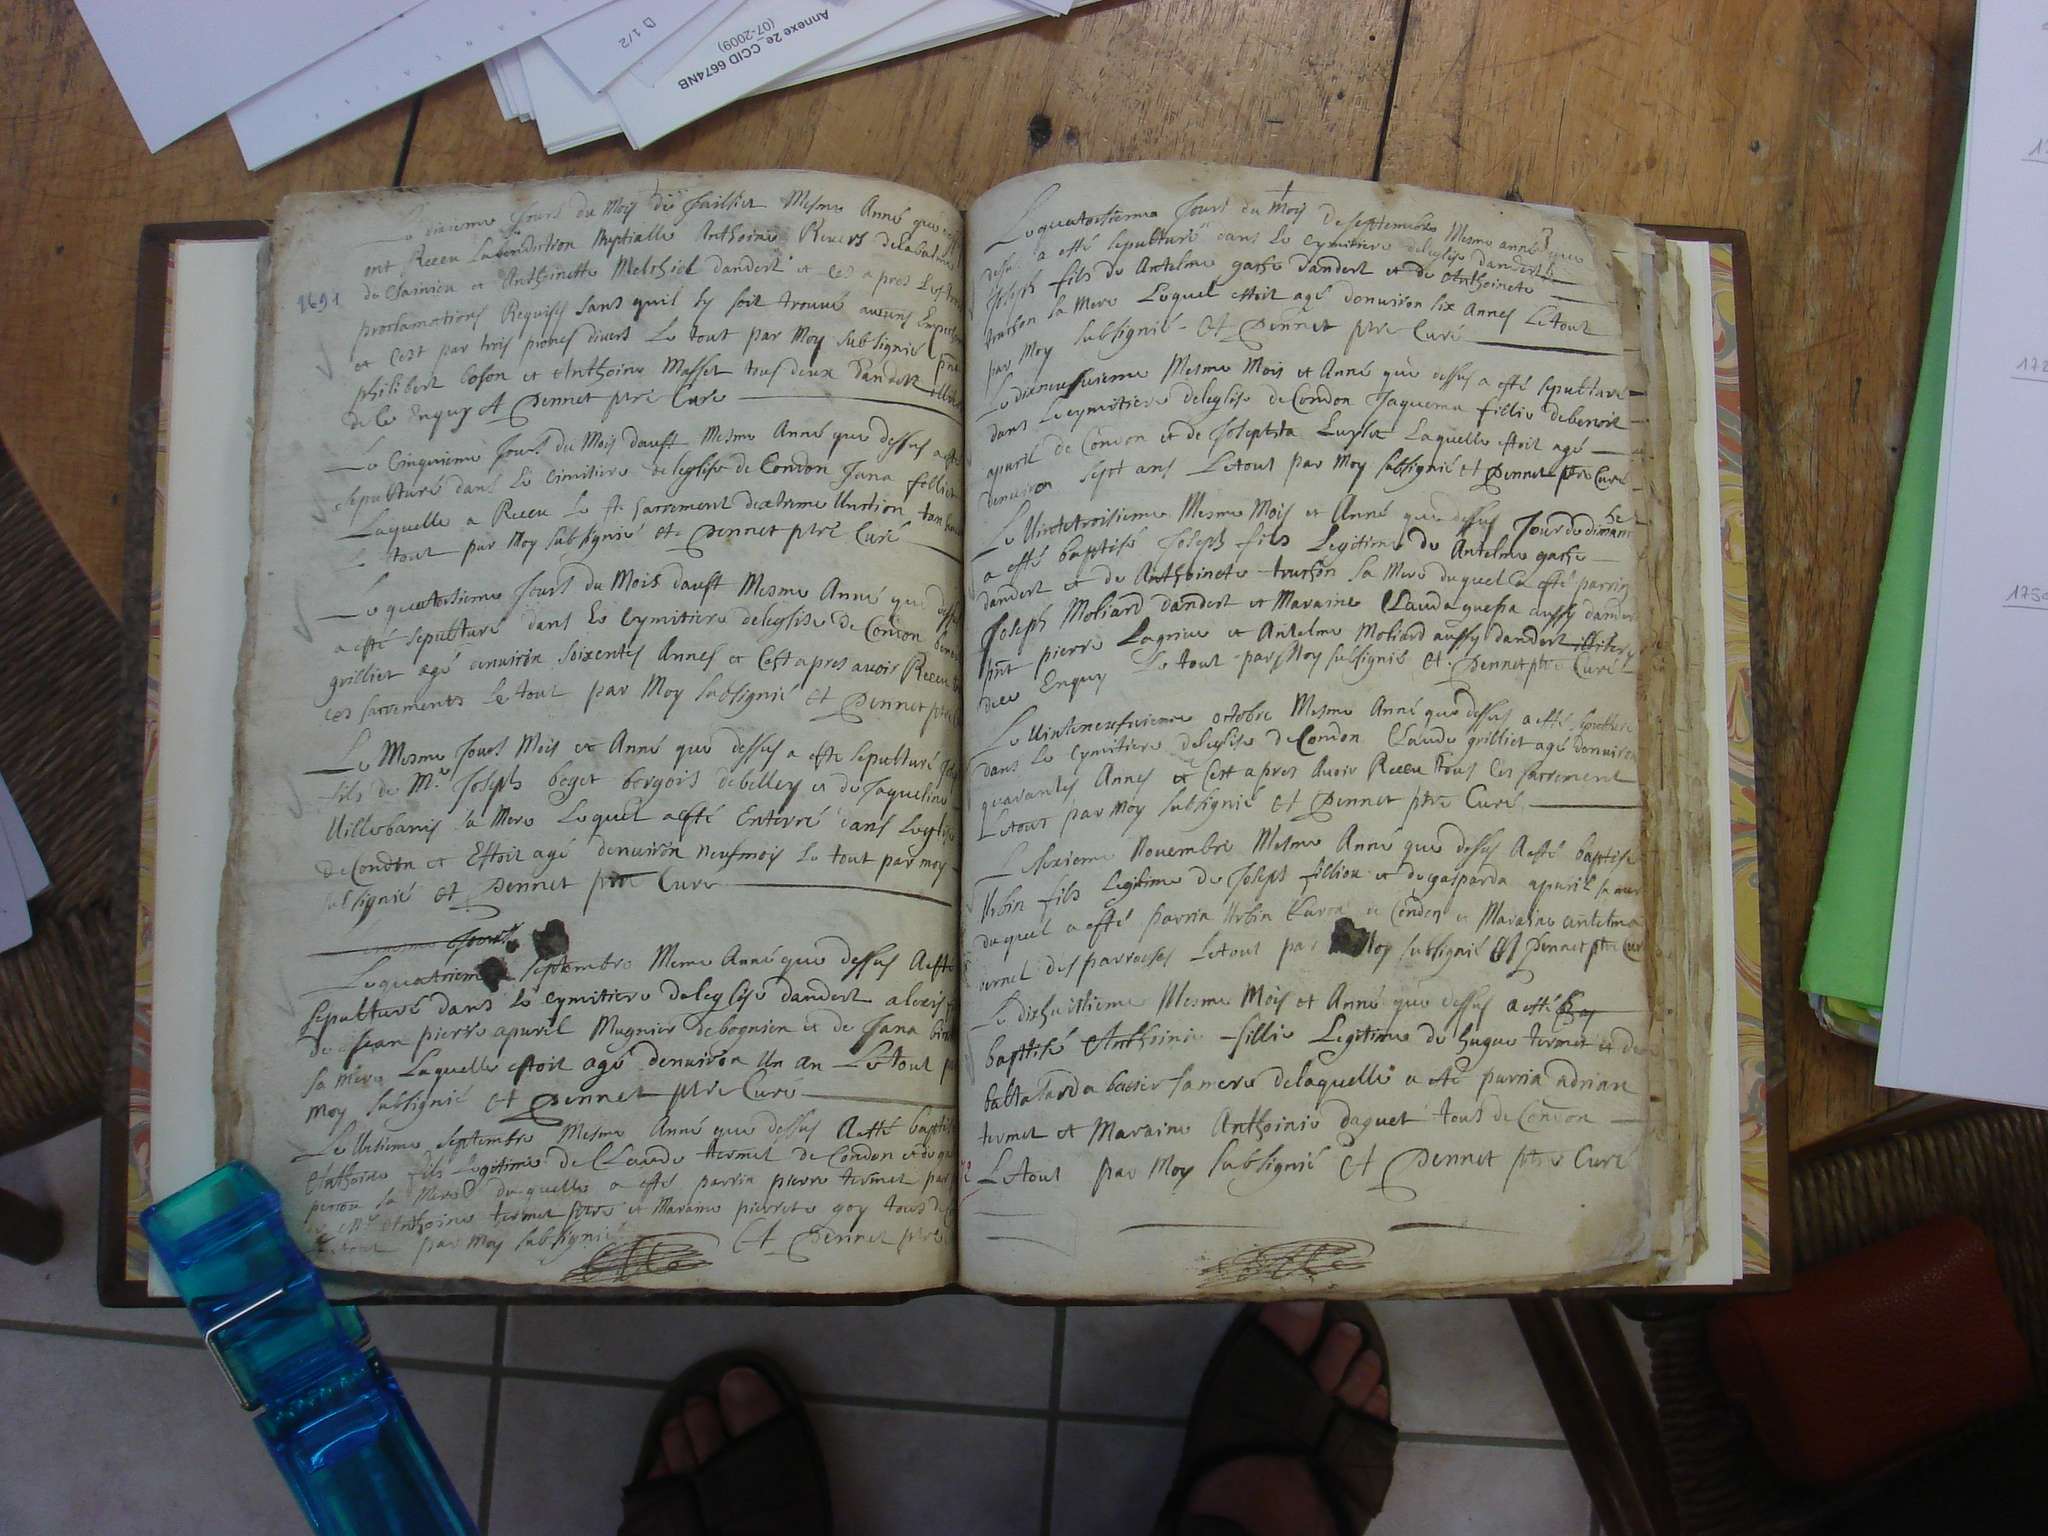 D 1/2
Annexe 2e_CCID 6674NB
(07-2009)
1691
Le dixieme Jours du Mois de Juilliet Mesme Anné que
ont Receu La benediction Nuptialle Anthoine Revers delabalme
de et Anthoinette Melchiod dandert et Cest apres Les trois
proclamations Requises sans quil sy soit trouué aucuns
et Cest par trois prones divers Le tout par Moy subsignié
philibert boson et Anthoine Masset tous deux dandert
de le Enquy Et Pennet ptre Cure
Le Cinquieme Jours du Mois daust Mesme Anné que dessus a esté
sepulturé dans Le Cimitiere deleglise de Condon Jana
Laquelle a Receu Le st sacrement dextreme Unction
Le tout par Moy subsignié Et Pennet ptre Curé
Le quatorsieme Jours du Mois daust Mesme Anné que dessus
a esté sepulturé dans Le Cymitiere deleglise de Condon
grilliet agé enuiron soixentes Annes et Cest apres auoir Receu
ces sacrements Le tout par Moy subsignié Et Pennet ptre
Le Mesme Jours Mois et Anné que dessus a esté sepulturé
fils de Mr. Joseph beget borgois debelley et de Jaqueline
Uillebanis sa Mere Lequel a esté Enterré dans Leglise
de Condon et Estoit agé denuiron neufmois Le tout par moy
subsignié Et Pennet ptre Cure
Le mesme Jours
Le quatriem septembre Meme Anné que dessus A esté
sepulturé dans Le Cymitiere deleglise dandert alexis
de Jean pierre apuril Mugnier debognien et de Jana
sa Mere Laquelle estoit agé denuiron Un an Le tout
Moy subsignié Et Pennet ptre Curé
Le septembre Mesme Anné que dessus A esté
Anthoine fils Legitime de Claude termet de Condon et de
perron sa Mere duquelle a esté parrin pierre termet
Mr Anthoine termet ptre et Maraine pierrete goy tous de
Le tout par Moy subsignié Et Pennet ptre
3
Le quatorsieme Jours du Mois de septembre Mesme anné que
dessus a esté sepulturé dans Le Cymitiere deleglise dandert
Joseph fils de Antelme gache dandert et de Anthoinete
truchon sa Mere Lequel estoit agé denuiron six Annes Le tout
par Moy subsignié Et Pennet ptre Curé
Le dixneufuieme Mesme Mois et Anné que dessus a esté sepulturé
dans Le cymitiere deleglise de Condon Jaquema fillie debenoit
apuril de Condon et de Josephta Luylet Laquelle estoit agé
denuiron sept ans Le tout par Moy subsignié Et Pennet ptre Curé
Le Uintetroisieme Mesme Mois et Anné que dessus Jour de dimanche
a esté baptisé Joseph fils Legitime de Antelme gache
dandert et de Anthoinete truchon sa Mere duquel a esté parrin
Joseph Moliard dandert et Maraine Clauda aussy dandert
pnt pierre Lagrive et Antelme Moliard aussy dandert illiteres
dece Enquy Le tout par Moy subsignié Et Pennet ptre Curé
Le Uinteneufuieme octobre Mesme Anné que dessus a esté sepulturé
dans Le Cymitiere deleglise de Condon Claude grilliet agé denuiron
quarantes Annes et Cest apres Auoir Receu tous Ces sacrement
Le tout par Moy subsignié Et Pennet ptre Curé
Le Nouembre Mesme Anné que dessus A esté baptisé
Urbin fils Legitime de Joseph fillion et de gasparda apuril sa mere
duquel a esté parrin Urbin de Condon et Maraine antelma
des parroisses Le tout par Moy subsignié Et Pennet ptre Cur
Le dixhuitieme Mesme Mois et Anné que dessus a esté bap
baptisé Anthoinie fillie Legitime de hugue termet et de
baltasarda sa mere delaquelle a esté parrin adrian
termet et Maraine Anthoinie daguet tous de Condon
Le tout par Moy subsignié Et Pennet ptre Curé
172
1750